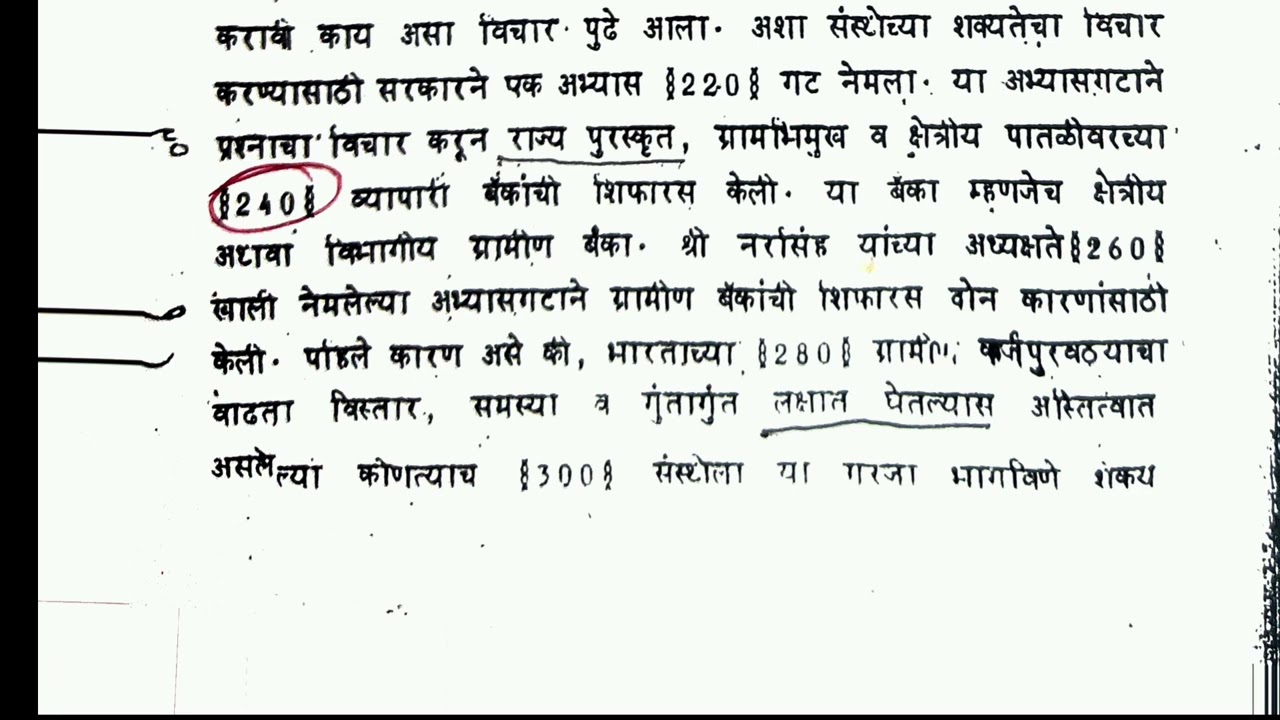 करावी काय असा विचार पुढे आला. अशा संस्थेच्या शक्यतेचा विचार
करण्यासाठी सरकारने एक अभ्यास §220§ गट नेमला. या अभ्यासगटाने
प्रश्नाचा विचार करून राज्य पुरस्कृत, ग्रामाभिमुख व क्षेत्रीय पातळीवरच्या
§240§ व्यापारी बँकांची शिफारस केली. या बँका म्हणजेच क्षेत्रीय
अथवा विभागीय ग्रामीण बँका. श्री नरसिंह यांच्या अध्यक्षते§260§
खाली नेमलेल्या अभ्यासगटाने ग्रामीण बँकांची शिफारस दोन कारणांसाठी
केली. पहिले कारण असे की, भारताच्या §280§ ग्रामीण कर्जपुरवठ्याचा
वाढता विस्तार, समस्या व गुंतागुंत लक्षात घेतल्यास अस्तित्वात
असलेल्या कोणत्याच §300§ संस्थेला या गरजा भागविणे शक्य